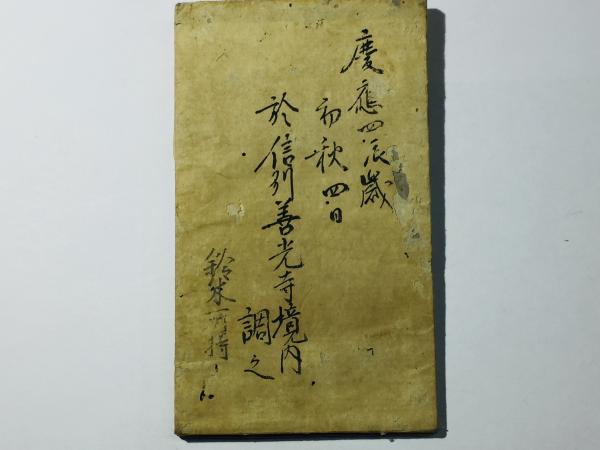 慶應四辰歳
初秋四日
於信州善光寺境内
調之
鈴木所持